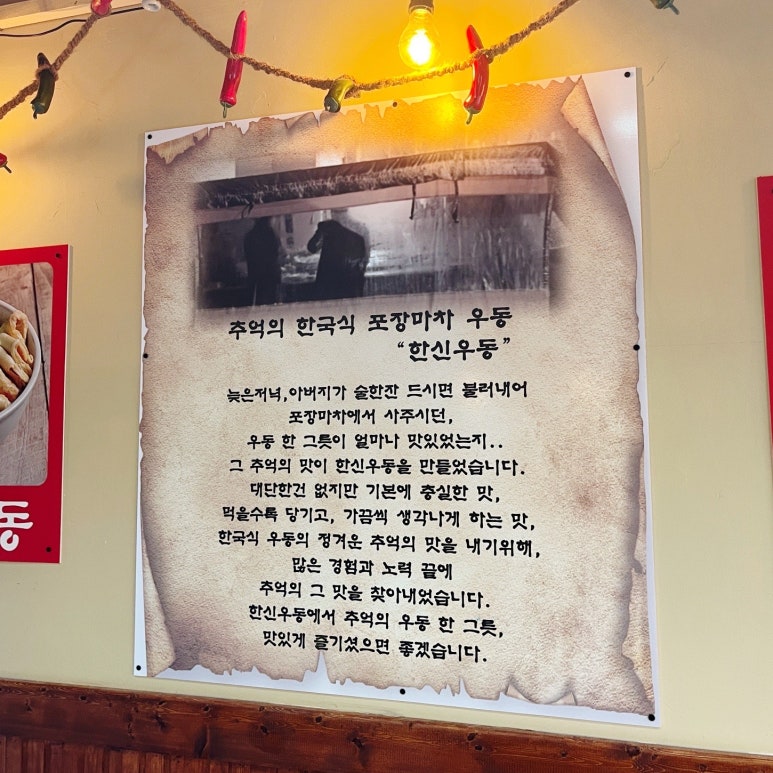 추억의 한국식 포장마차 우동
“한신우동”
늦은저녁,아버지가 술한잔 드시면 불러내어
포장마차에서 사주시던,
우동 한 그릇이 얼마나 맛있었는지..
그 추억의 맛이 한신우동을 만들었습니다.
대단한건 없지만 기본에 충실한 맛,
먹을수록 당기고, 가끔씩 생각나게 하는 맛,
한국식 우동의 정겨운 추억의 맛을 내기위해,
많은 경험과 노력 끝에
추억의 그 맛을 찾아내었습니다.
한신우동에서 추억의 우동 한 그릇,
맛있게 즐기셨으면 좋겠습니다.
동